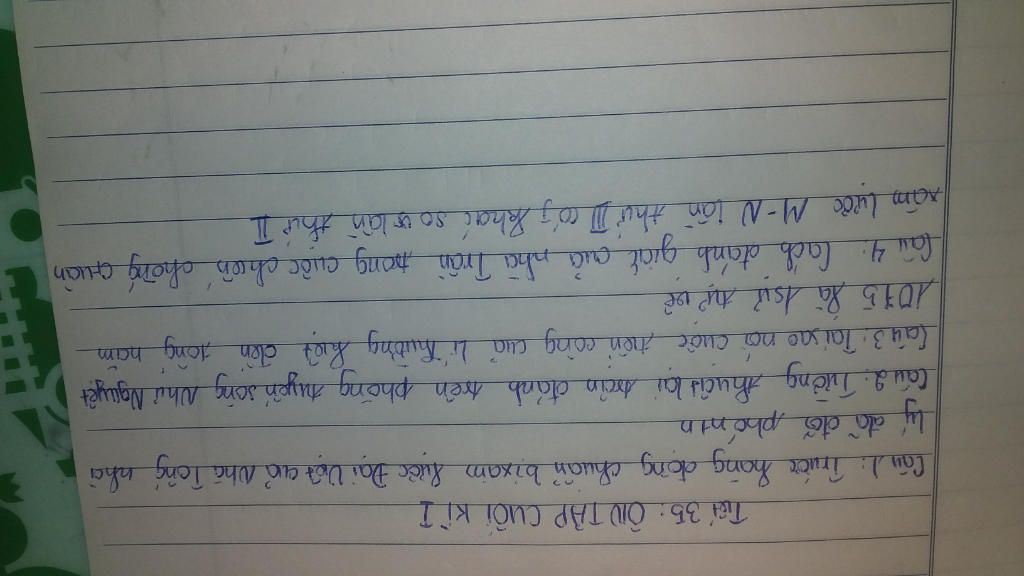 Tiết 35: ÔN TẬP CUỐI KÌ I
Câu 1: Trước hàng động chuẩn bị xâm lược Đại Việt của Nhà Tống nhà
lý đã đối phó ntn
Câu 2: Tường thuật lại trận đánh trên phòng tuyến sông Như Nguyệt
Câu 3: Tại sao nói cuộc tiến công của Lí Thường Kiệt đến tống năm
1075 là 1 sự tự vệ
Câu 4: Cách đánh giặc của nhà Trần trong cuộc chiến chống quân
xâm lược M-N lần thứ III có gì khác so với lần thứ II